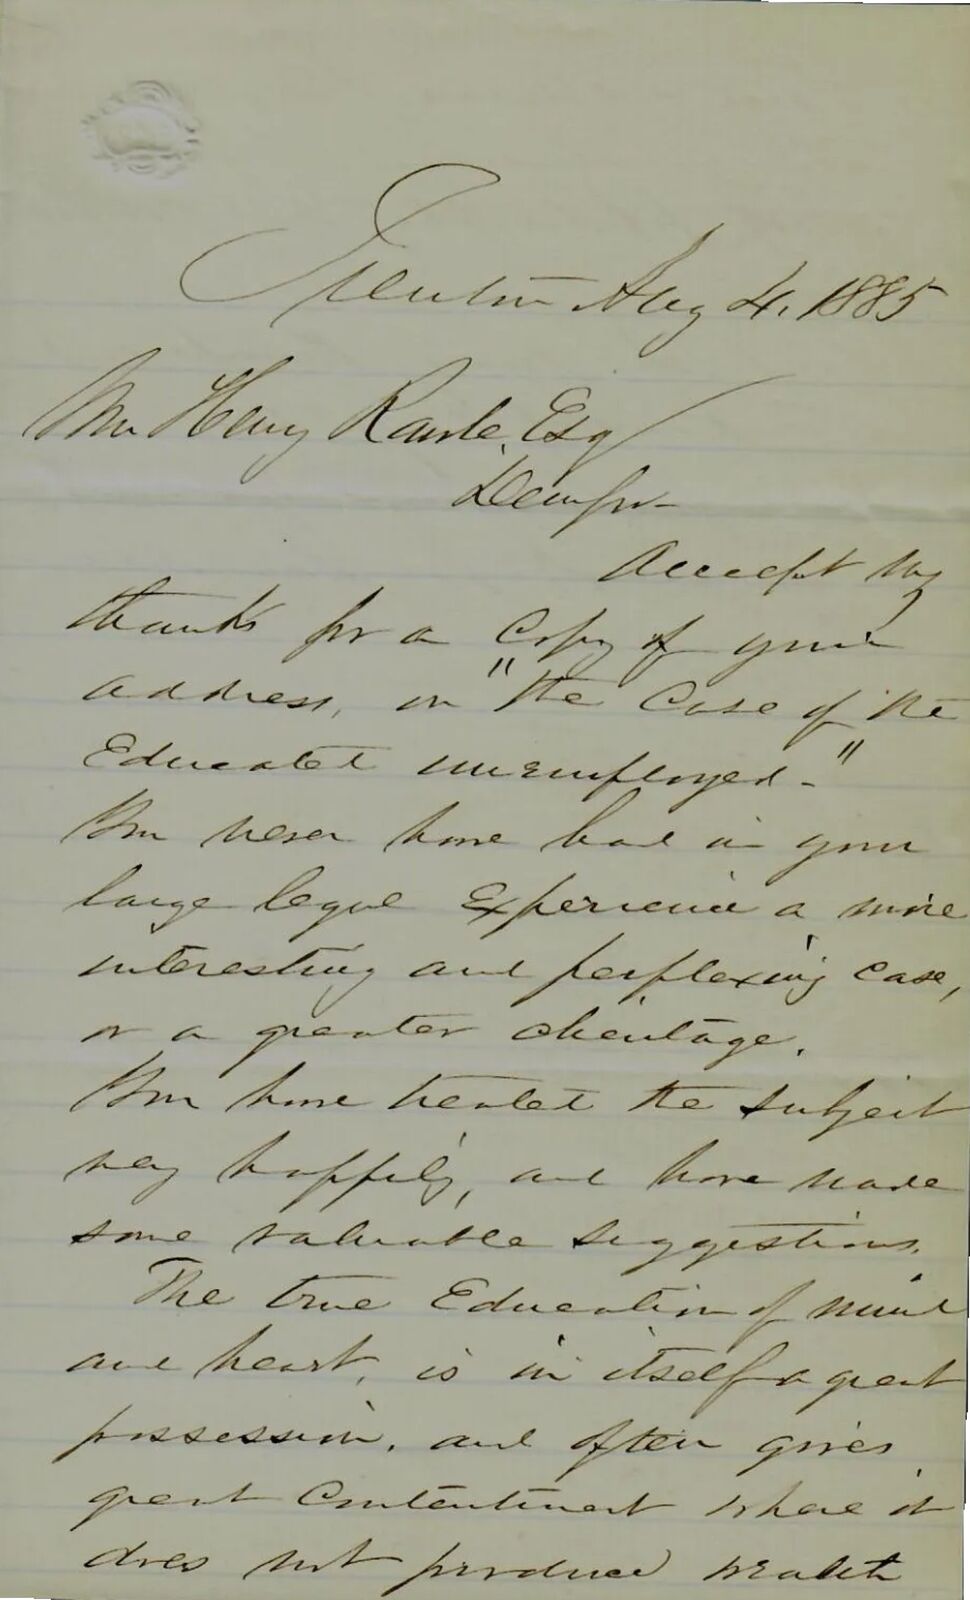 Trenton Aug 4, 1885
Wm Henry Rawle, Esq
Dear Sir
Accept my
thanks for a Copy of your
address, on "The Case of the
Educated unemployed-"
You never have had in your
large legal Experience a more
interesting and perplexing case,
or a greater clientage.
You have treated the subject
very happily, and have made
some valuable suggestions.
The true Education of mind
and heart, is in itself a great
possession, and often gives
great Contentment where it
does not produce wealth